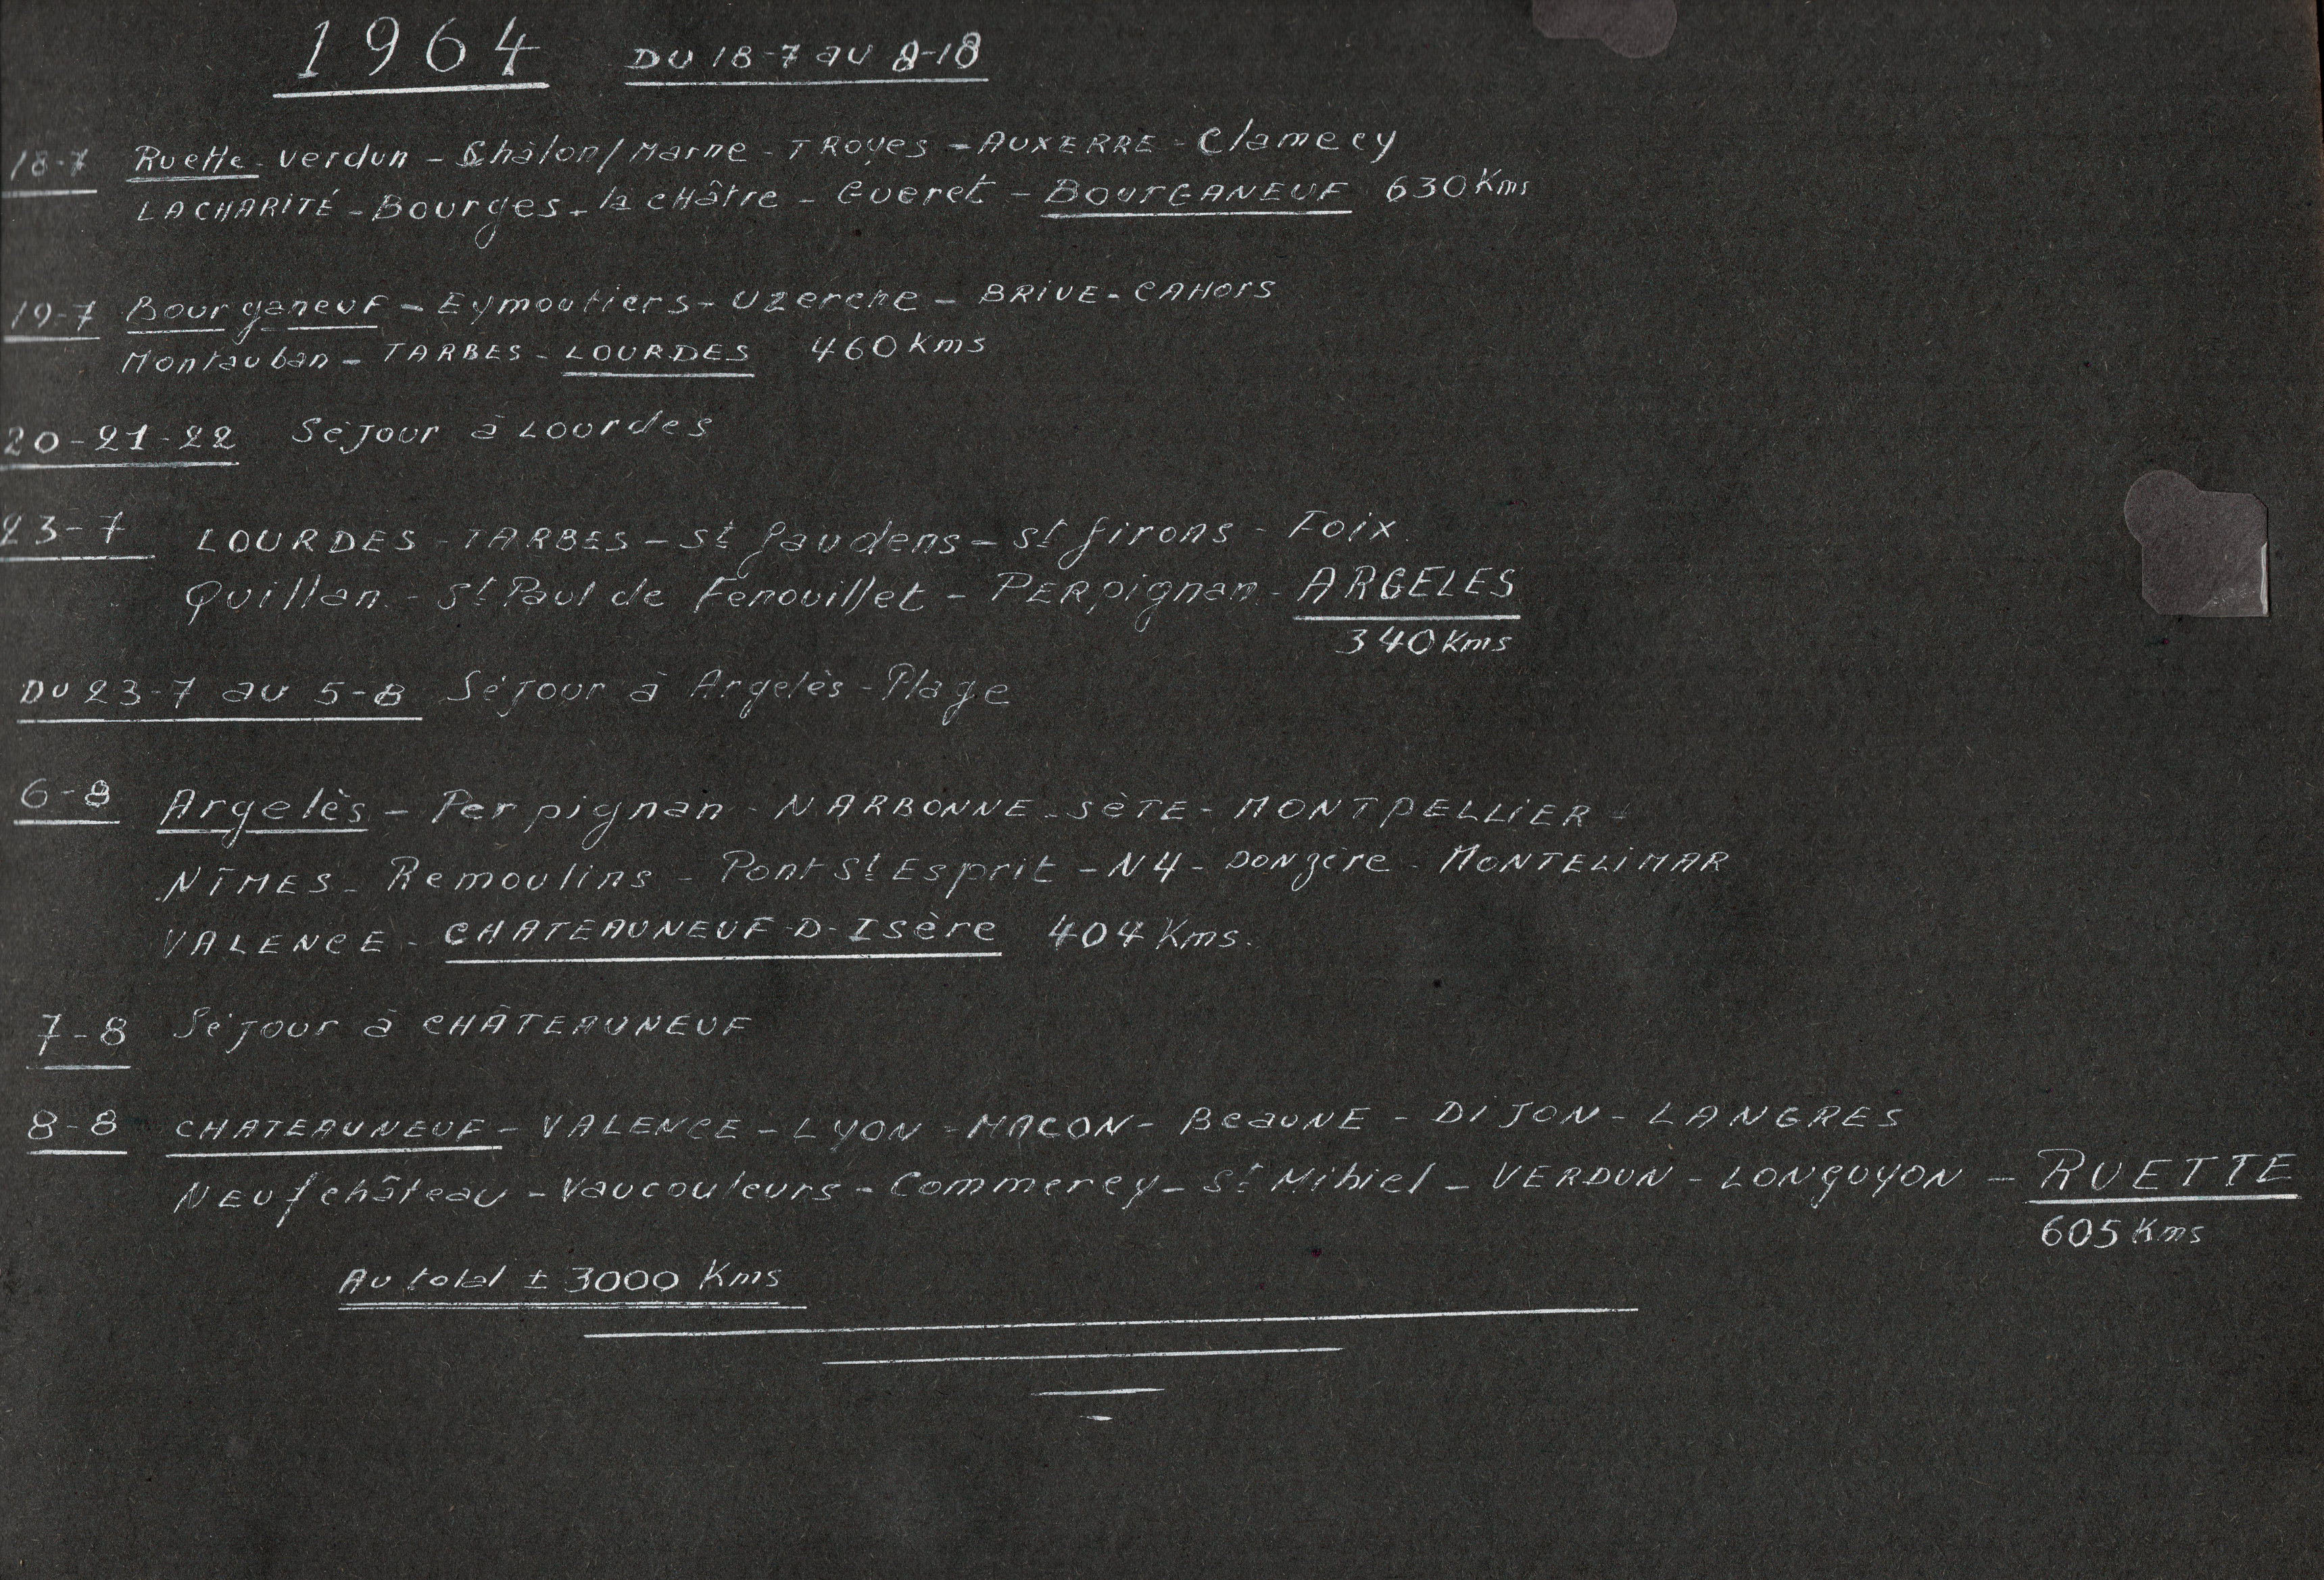 1964 DU 18-7 au 8-18
18-7 Ruette - Verdun - Châlon/Marne - TROyes - AUXERRE - Clamecy
LACHARITÉ - Bourges - la cHâtre - Gueret - BOURGANEUF 630 Kms
19-7 Bourganeuf - Eymoutiers - Uzerche - BRIVE - CAHors
Montauban - TARBES - LOURDES 460 Kms
20-21-22 Séjour à Lourdes
23-7 LOURDES - TARBES - St Gaudens - St Girons - Foix
Quillan - St Paul de Fenouillet - PERpignan - ARGELES
340 Kms
DU 23-7 au 5-8 Séjour à Argelès-Plage
6-8 Argelès - Perpignan - NARBONNE - SèTE - MONTPELLIER -
NÎMES - Remoulins - Pont St Esprit - N4 - DONzère - MONTELIMAR
VALENCE - CHATEAUNEUF-D-Isère 404 Kms.
7-8 Séjour à CHÂTEAUNEUF
8-8 CHATEAUNEUF - VALENCE - LYON - MACON - BeauNE - DIJON - LANGRES
NEUfchâteau - Vaucouleurs - Commercy - St Mihiel - VERDUN - LONGUYON - RUETTE
605 Kms
Au total ± 3000 Kms